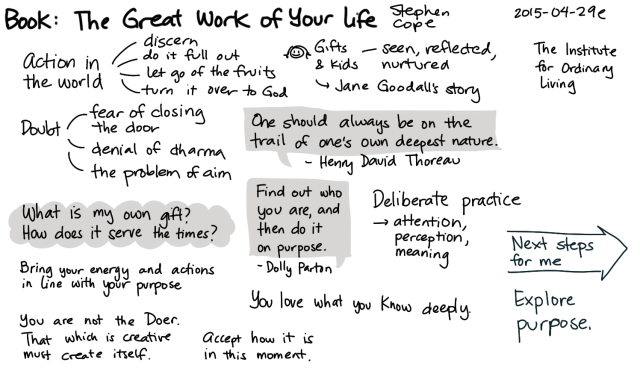 Book: The Great Work of Your Life Stephen Cope
2015-04-29e
Action in the world
discern
do it full out
let go of the fruits
turn it over to God
Gifts & kids
seen, reflected, nurtured
→ Jane Goodall's story
The Institute
for Ordinary
Living
Doubt
fear of closing
the door
denial of dharma
the problem of aim
One should always be on the
trail of one's own deepest nature.
- Henry David Thoreau
What is my own gift?
How does it serve the times?
Find out who
you are, and
then do it
on purpose.
- Dolly Parton
Deliberate practice
→ attention,
perception,
meaning
Next steps
for me
Bring your energy and actions
in line with your purpose
You love what you know deeply.
Explore
purpose.
You are not the Doer.
That which is creative
must create itself.
Accept how it is
in this moment.